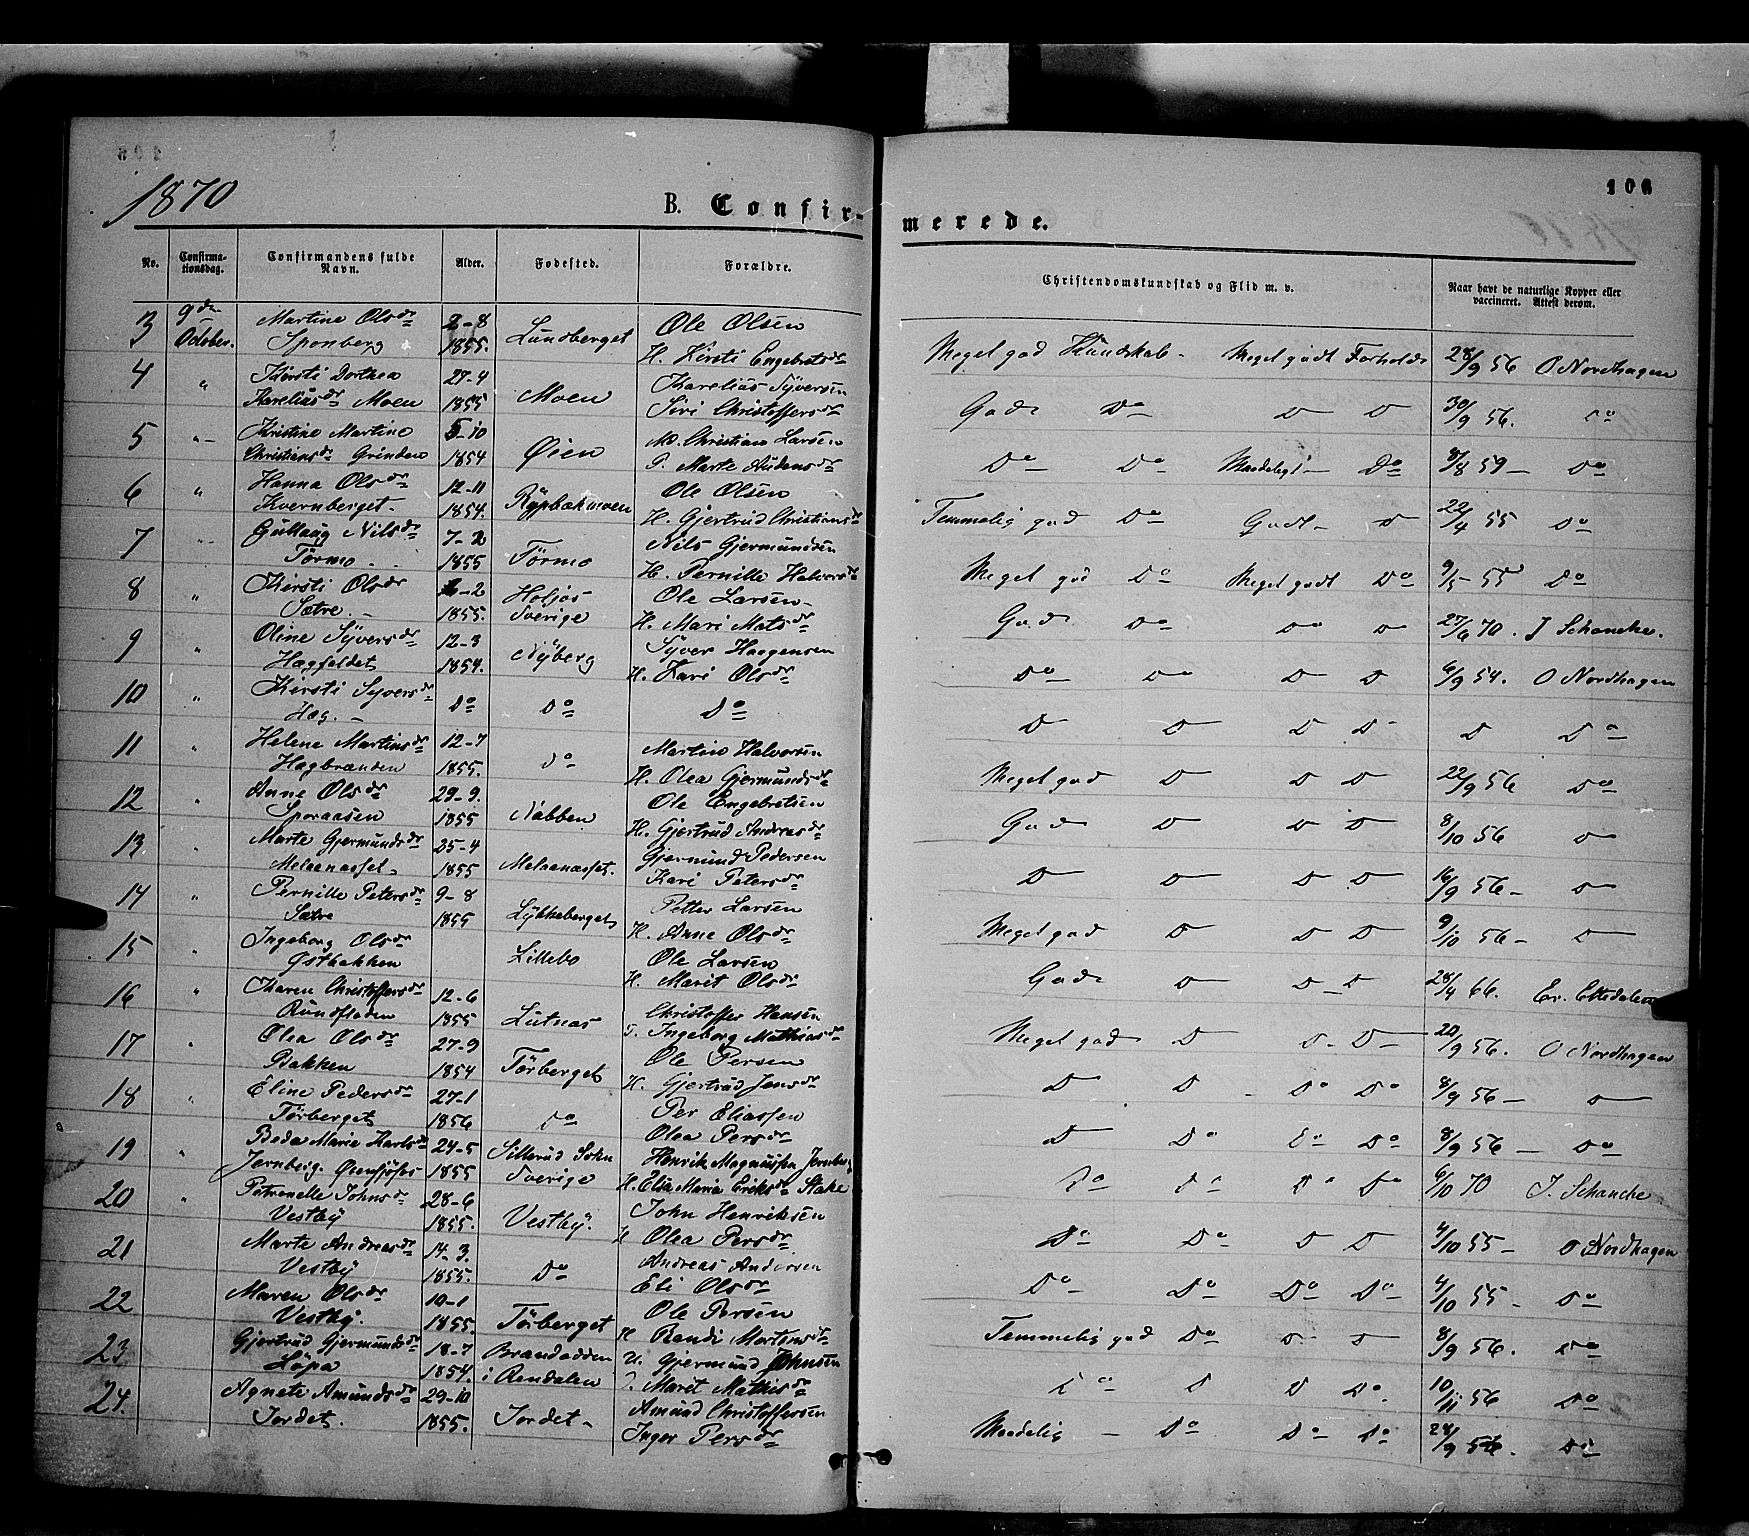 1870
106
B. Confir-
merede.
No.
Confirma-
tionsdag.
Confirmandens fulde
Navn.
Alder.
Fødested.
Forældre.
Christendomskundskab og Flid m. v.
Naar havt de naturlige Kopper eller
vaccineret. Attest derom.
3 9de Martine Olsdr 2-8 Lundberget Ole Olsen
October. Sponberg 1855. H. Kirsti Engebretsdr
Meget god Kundskab - Meget godt Forholds 28/9 56 O Nordhagen
4 " Kirsti Dorthea 27-4 Moen Karelius Syversen
Kareliusdr Moen 1855 Siri Christoffersdr
God Do D D 30/9 56. Do
5 " Kristine Martine 5-10 Øien Christian Larsen
Christiansdr Grinden 1854 P. Marte Audensdr
Do Do Maadeligt - Do 8/8 59 - Do
6 " Hanna Olsdr 12-11 Rypbakmoen Ole Olsen
Kvernberget - 1854. H. Gjertrud Christiansdr
Temmelig god Do Godt - D 22/4 55 Do
7 " Gullaug Nilsdr 7-2 Törmo Nils Gjermundsen
Törmo 1855 H. Pernille Halvorsdr
Meget god Do Meget godt Do 9/5 - 55 Do
8 " Kirsti Olsdr 6-2 Holjøs Ole Larsen
Sætre. 1855. Sverige H. Mari Matsdr
God Do Do D 27/6 70. J Schancke.
9 " Oline Syversdr 12-3 Nyberg Syver Haagensen
Hagfaldet 1854. H. Kari Olsdr
Do Do D D 6/9 54. O Nordhagen
10 " Kirsti Syversdr Do Do Do
Hag. -
D D D D D Do
11 " Helene Martinsdr 12-7 Do Martin Halvorsen
Hagbrænden 1855. H. Olea Gjermundsdr
Meget god D D D 22/9 56 Do
12 " Anne Olsdr 29-9. Nabben Ole Engebretsen
Sporaasen 1855 H. Gjertrud Andreasdr
God D D D 8/10 56 D
13 " Marte Gjermundsdr 25-4 Melsenæsset. Gjermund Pedersen
Melsenæsset - 1855 Kari Petersdr
D D D D 16/9 56 - D
14 " Pernille Petersdr 9-8 Lykkeberget Petter Larsen
Sætre 1855 H. Anne Olsdr
Meget god D D D 9/10 56 - D
15 " Ingeborg Olsdr Lillebo Ole Larsen
Østbakken H. Marit Olsdr
God D D D 28/4 66. Er. Elledalen
16 " Karen Christoffersdr 12-6 Lutnæs Christoffer Hansen
Rundfloden 1855 Ingeborg Mathiasdr
Meget god D D - D - 20/9 56. O Nordhagen
17 " Olea Olsdr 27-9 Törberget Ole Persen
Bakken 1854 H. Gjertrud Jonsdr
D D Do Do 8/9 56 - D
18 " Eline Pedersdr 27-1 Do Per Eliassen
Törberget 1856 Olea Persdr
D Do Do Do 8/9 56 - Do
19 " Beda Maria Karlsdr 24-5 Sillerud Sokn Henrik Magnussen Jernberg
Jernberg. 1855 Sverige H. Elsa Maria Eriksdr Stake
Do Do Do Do 6/10 70 J. Schancke
20 " Petronelle Johnsdr 28-6 Vestby. John Henriksen
Vestby 1855. H Olea Persdr
Do Do D D 4/10 55 - O Nordhagen
21 Marte Andreasdr 14-3. Do Andreas Andersen
Vestby 1855. Eli Olsdr
Do Do Do Do 4/10 55 - Do
22 Maren Olsdr 10-1 Törberget Ole Persen
Vestby. 1855. H Randi Mortensdr
Temmelig god Do D D 8/9 56. Do
23. Gjertrud Gjermundsdr 18-7 Brændodden U. Gjermund Johnsen
Löpa 1854. i Rendalen Marit Mathisdr
Do D D Do. 10/11 56 Do
24. Agnete Amundsdr 29-10 Jordet - Amund Christoffersen
Jordet. 1855. Inger Persdr
Maadelig - Do Do Do 28/9 56. Do